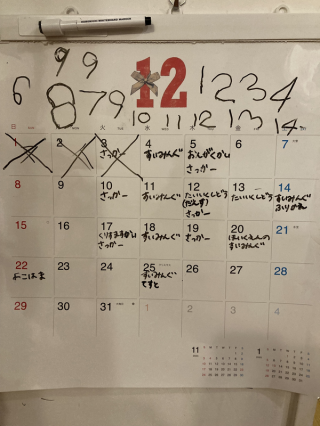 9 9
6 8 79 12 1 2 3 4
10 11 12 13 14
日 月 火 水 木 金
1 2 3 4 5 6 7
さっかー すいみんぐ おんがくかい
さっかー
8 9 10 11 12 13 14
さっかー すいみんぐ たいいくしどう たいいくしどう すいみんぐ
(だんす) ふりかえ
さっかー
15 16 17 18 19 20 21
くりすますかい すいみんぐ さっかー ほいくえんの
さっかー すいみんぐ
22 23 24 25 26 27 28
よこはま すいみんぐ
てすと
29 30 31 1 2 3 4
11 1